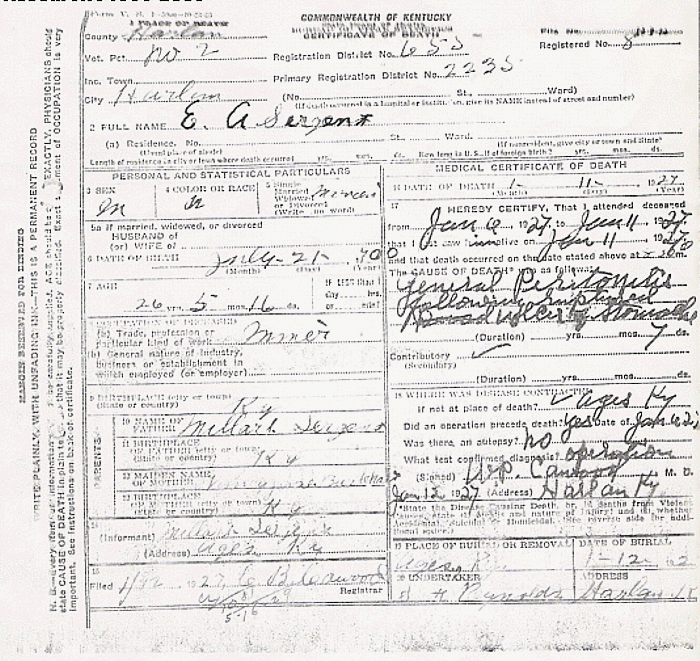 1 PLACE OF DEATH
County Harlan
Vot. Pct. No 2
Inc. Town
City Harlan
COMMONWEALTH OF KENTUCKY
CERTIFICATE OF DEATH
File No.
Registered No. 8
Registration District No. 655
Primary Registration District No. 2235
(No. St., Ward)
(If death occurred in a hospital or institution, give its NAME instead of street and number)
2 FULL NAME E. A Sergent
(a) Residence. No. St. Ward.
(Usual place of abode) (If nonresident, give city or town and State)
Length of residence in city or town where death occurred yrs. mos. ds. How long in U.S., if of foreign birth? yrs. mos. ds.
PERSONAL AND STATISTICAL PARTICULARS
3 SEX
M
4 COLOR OR RACE
5 Single
Married
Widowed
or Divorced
(Write the word)
5a If married, widowed, or divorced
HUSBAND of
(or) WIFE of
6 DATE OF BIRTH July-21-1900
(Month) (Day) (Year)
7 AGE
26 yrs. 5 mos. 16 ds.
IF LESS than 1
day, hrs.
or min?
8 OCCUPATION OF DECEASED
(a) Trade, profession or
particular kind of work Miner
(b) General nature of industry,
business or establishment in
which employed (or employer)
9 BIRTHPLACE (city or town)
(State or country) Ky
PARENTS
10 NAME OF
FATHER Millard Sergent
11 BIRTHPLACE
OF FATHER (city or town)
(State or country) Ky
12 MAIDEN NAME
OF MOTHER
13 BIRTHPLACE
OF MOTHER (city or town)
(State or country) Ky
14
(Informant) Millard Sergent
(Address) Ages Ky
15
Filed 1/12 1927
Registrar
MEDICAL CERTIFICATE OF DEATH
16 DATE OF DEATH 1- 11- 1927
(Month) (Day) (Year)
17
I HEREBY CERTIFY, That I attended deceased
from Jan 6, 1927, to Jan 11 1927
that I last saw him alive on Jan 11 1927
and that death occurred on the date stated above at m.
The CAUSE OF DEATH* was as follows:
General Peritonitis
following ruptured
ulcer of stomach
(Duration) yrs. mos. 7 ds.
Contributory
(Secondary)
(Duration) yrs. mos. ds.
18 WHERE WAS DISEASE CONTRACTED
if not at place of death? Ages Ky
Did an operation precede death? yes Date of Jan 6 27
Was there an autopsy? no
What test confirmed diagnosis? operation
(Signed) M. D.
Jan 12 1927 (Address) Harlan Ky
*State the Disease Causing Death, or, in deaths from Violent
Causes, state (1) Means and nature of Injury; and (2) whether
Accidental, Suicidal or Homicidal. (See reverse side for additional space.)
19 PLACE OF BURIAL OR REMOVAL
Ages Ky
DATE OF BURIAL
1-12- 192
20 UNDERTAKER
Reynolds
ADDRESS
Harlan
MARGIN RESERVED FOR BINDING
WRITE PLAINLY, WITH UNFADING INK—THIS IS A PERMANENT RECORD
N. B.—Every item of information should be carefully supplied. AGE should be stated EXACTLY. PHYSICIANS should
state CAUSE OF DEATH in plain terms, so that it may be properly classified. Exact statement of OCCUPATION is very
important. See instructions on back of certificate.